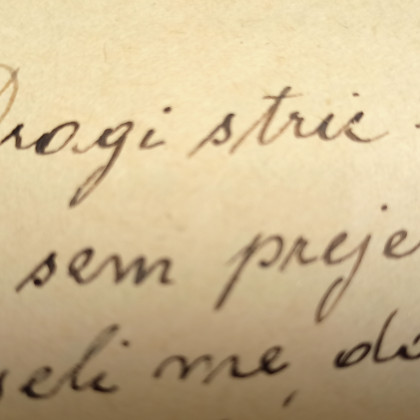 Dragi stric
sem preje
seli me, da